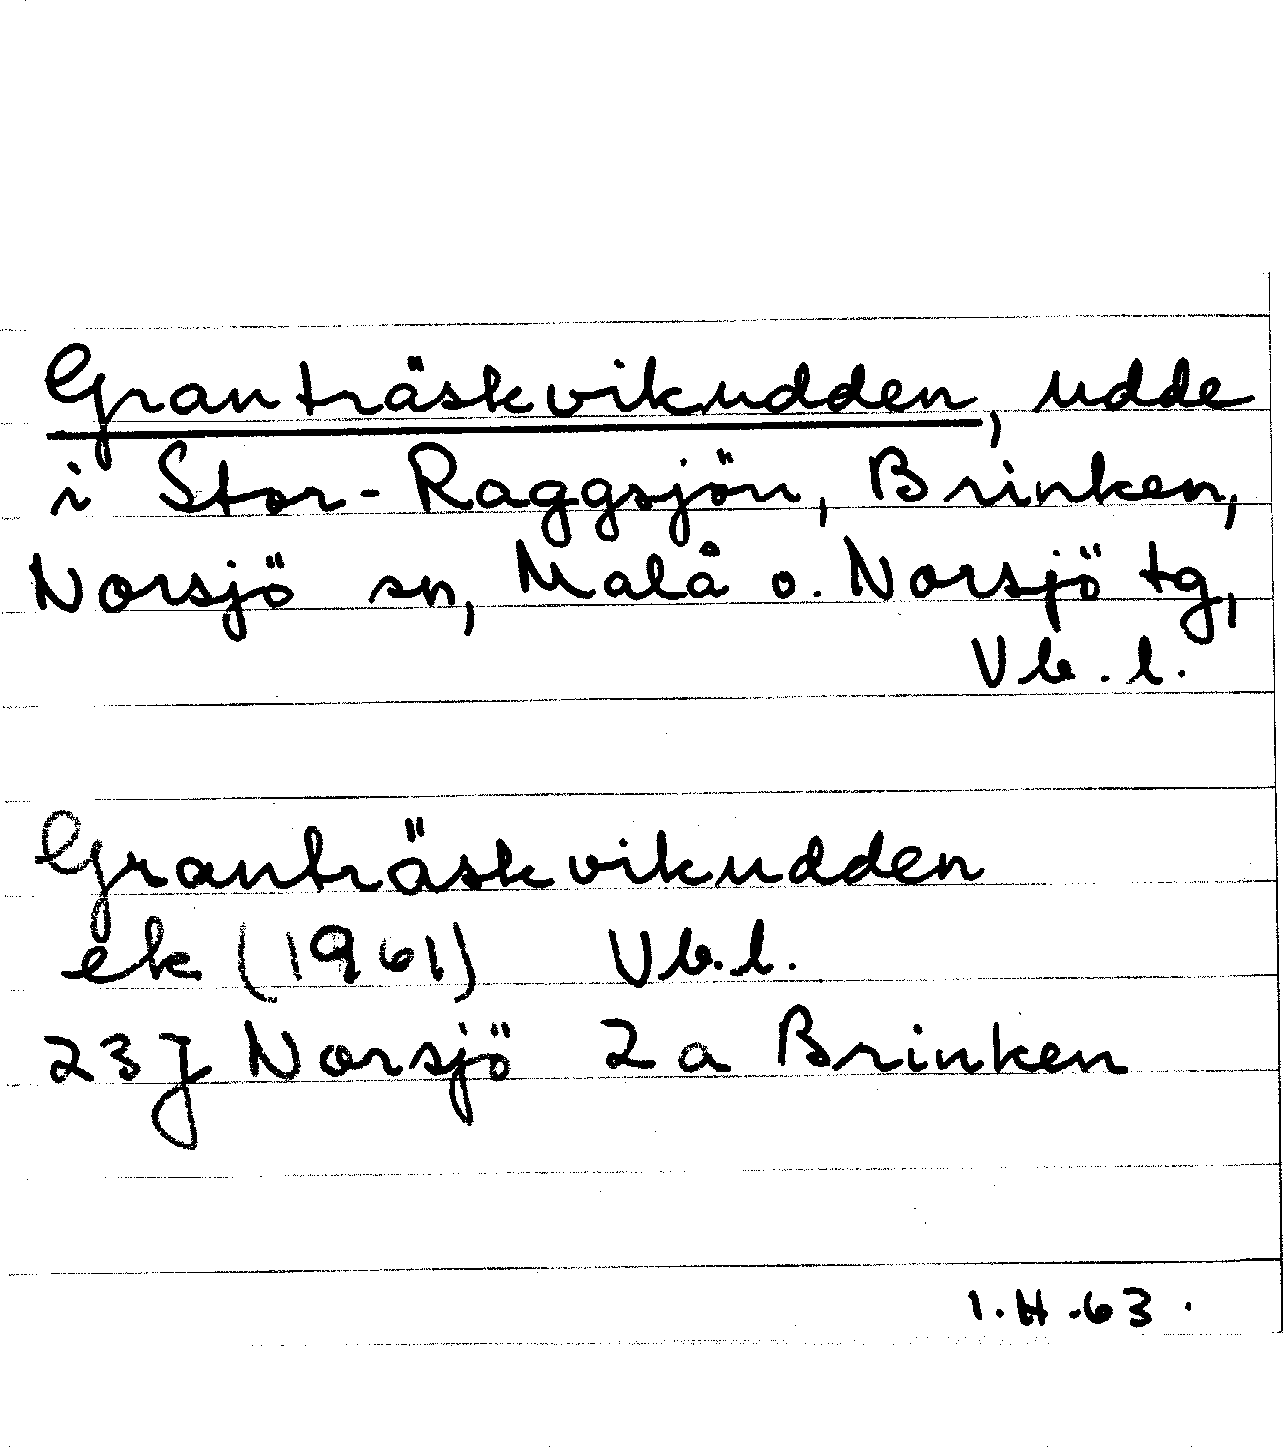 Granträskvikudden, udde
i Stor-Raggsjön, Brinken,
Norsjö sn, Malå o. Norsjö tg,
Vb.l.
Granträskvikudden
ek (1961) Vb.l.
23J Norsjö 2a Brinken
I.H.63.